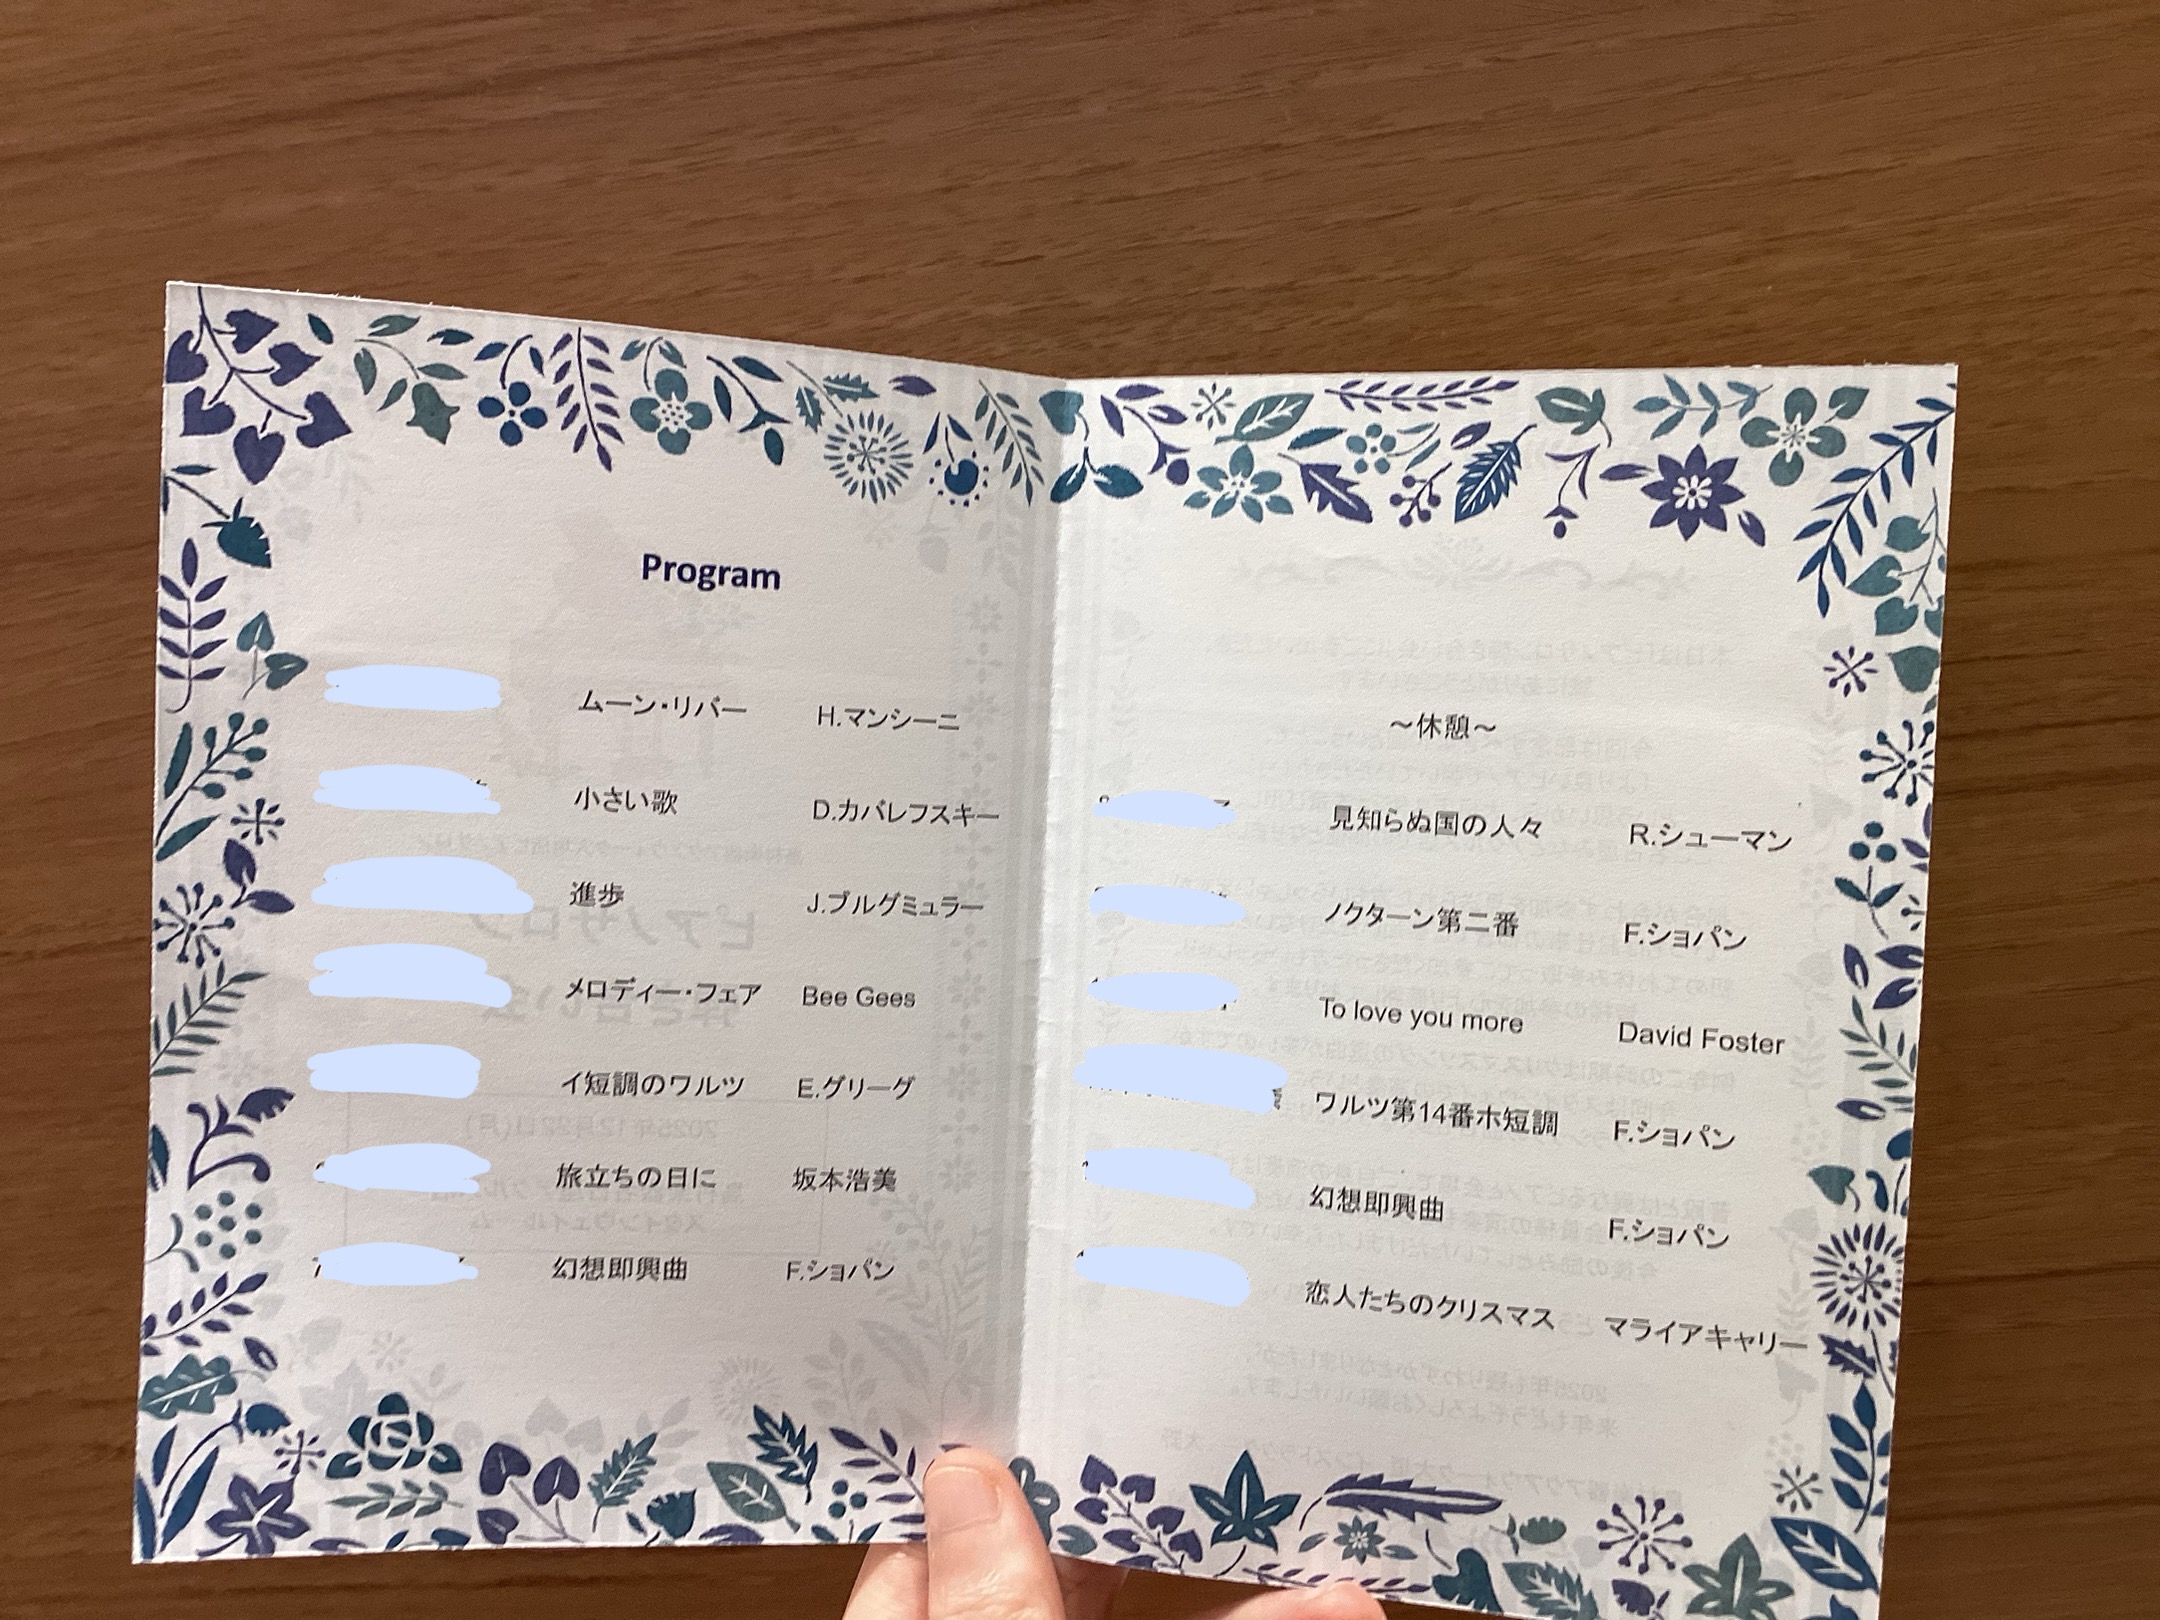 Program
ムーン・リバー H.マンシーニ
小さい歌 D.カバレフスキー
進歩 J.ブルグミュラー
メロディー・フェア Bee Gees
イ短調のワルツ E.グリーグ
旅立ちの日に 坂本浩美
幻想即興曲 F.ショパン
～休憩～
見知らぬ国の人々 R.シューマン
ノクターン第二番 F.ショパン
To love you more David Foster
ワルツ第14番ホ短調 F.ショパン
幻想即興曲 F.ショパン
恋人たちのクリスマス マライアキャリー